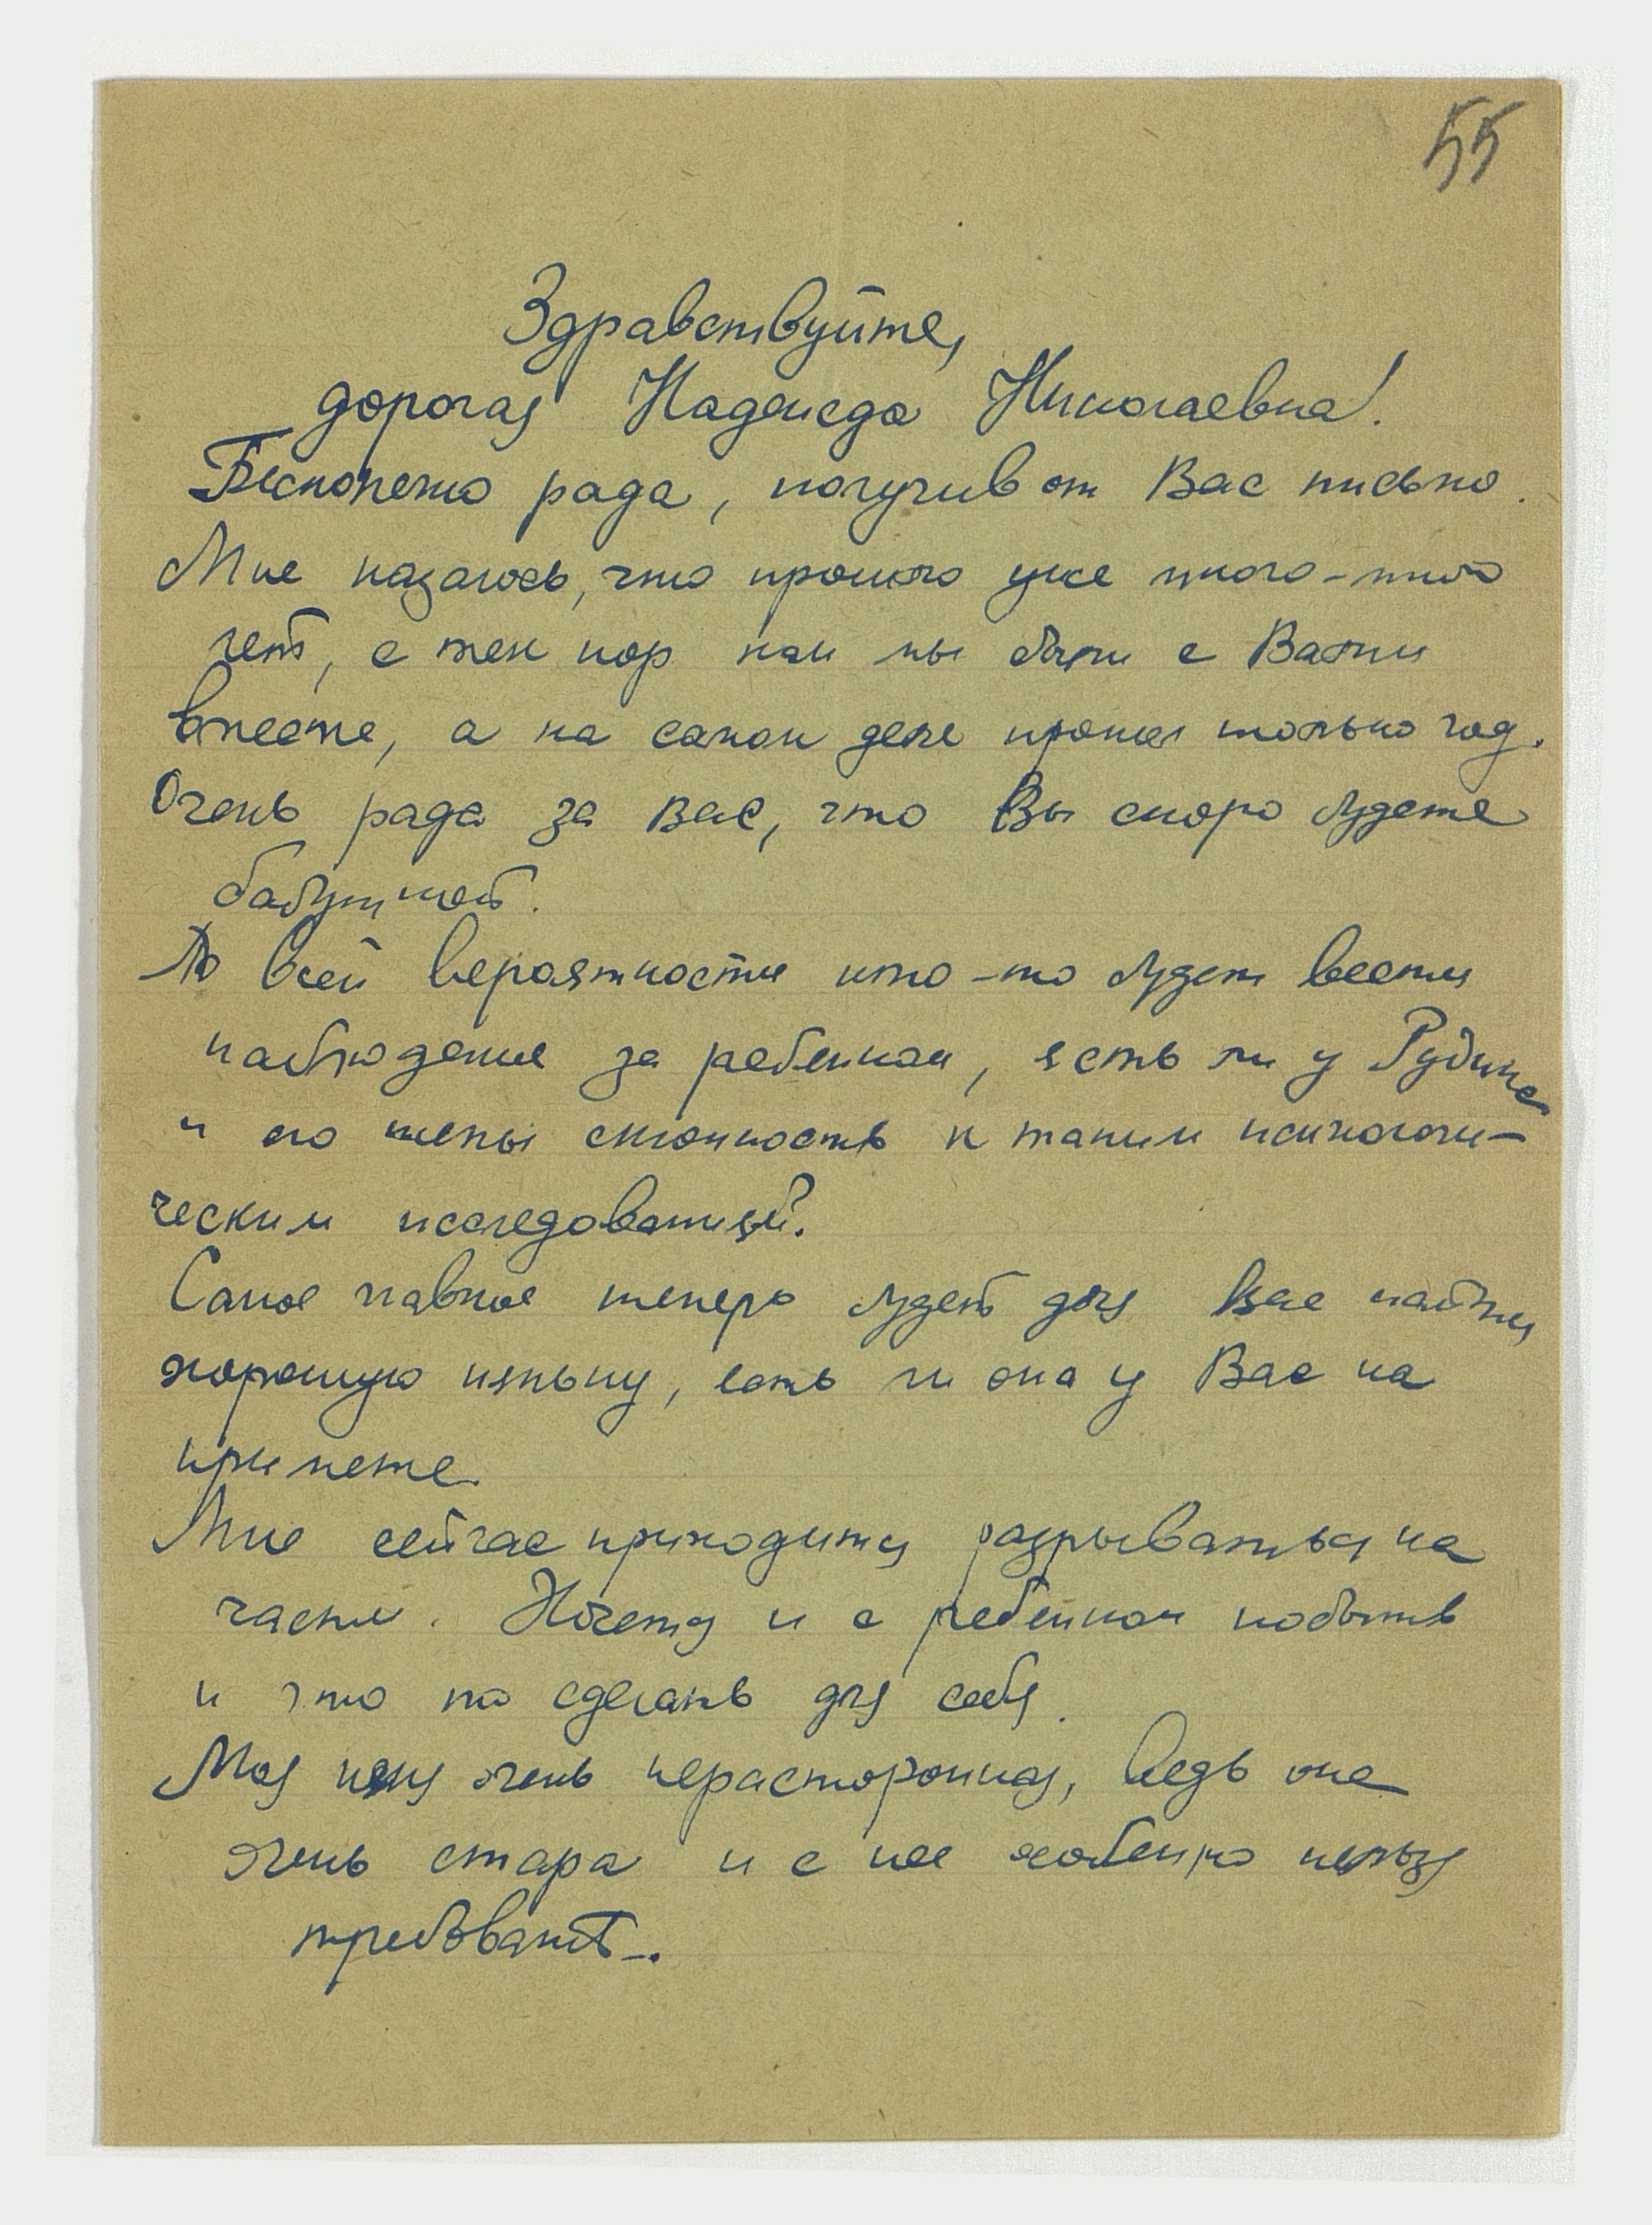 55
Здравствуйте,
дорогая Надежда Николаевна!
Бесконечно рада, получив от Вас письмо.
Мне казалось, что прошло уже много-много
лет, с тех пор как мы были с Вами
вместе, а на самом деле прошел только год.
Очень рада за Вас, что Вы скоро будете
бабушкой.
По всей вероятности кто-то будет вести
наблюдение за ребенком, есть ли у Рудика
и его жены склонность к таким психологи-
ческим исследований?
Самое главное теперь будет для Вас найти
хорошую няньку, есть ли она у Вас на
примете.
Мне сейчас приходится разрываться на
части. Хочется и с ребенком побыть
и что то сделать для себя.
Моя няня очень нерасторопная, ведь она
очень стара и с нее особенно нельзя
требовать.